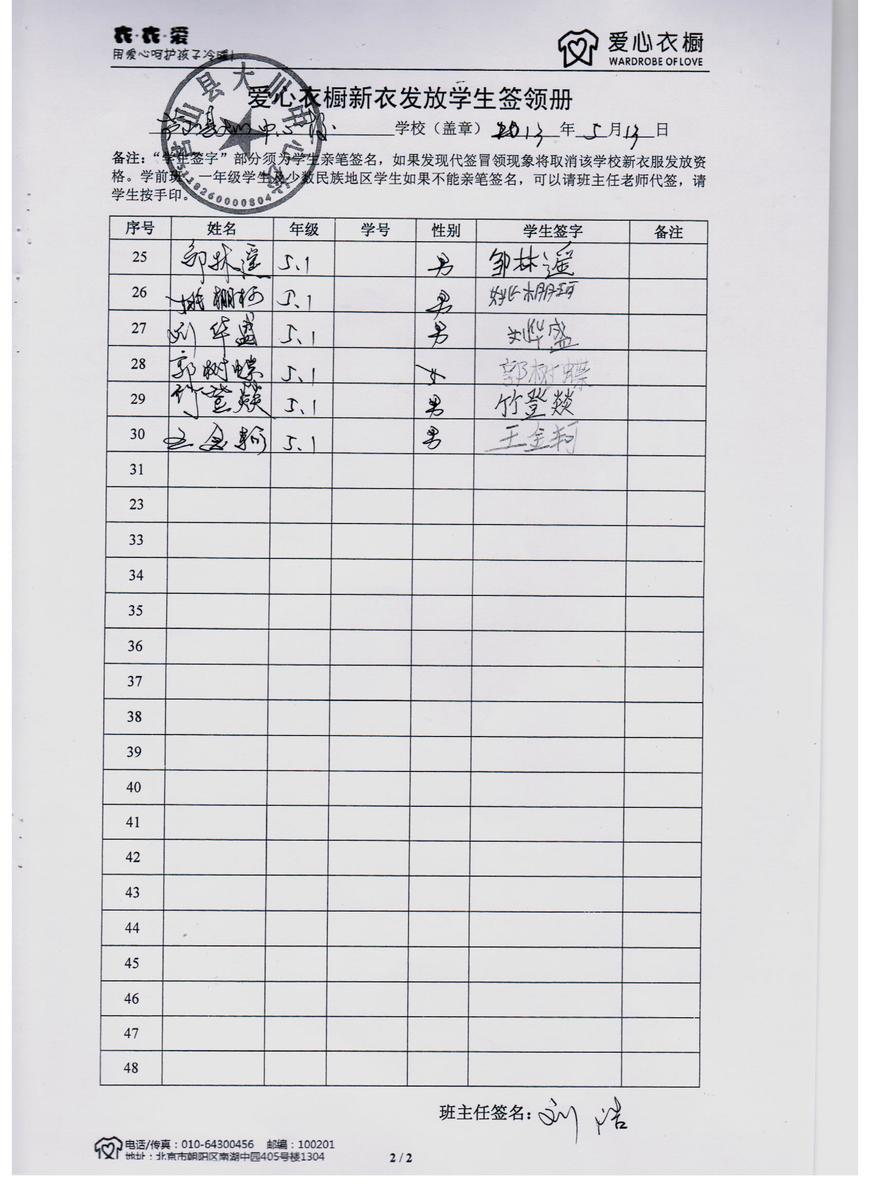 衣·衣·爱
用爱心呵护孩子冷暖!
爱心衣橱
WARDROBE OF LOVE
爱心衣橱新衣发放学生签领册
芦山县大川中心校 学校（盖章） 2013 年 5 月 13 日
备注：“学生签字”部分须为学生亲笔签名，如果发现代签冒领现象将取消该学校新衣服发放资
格。学前班、一年级学生及少数民族地区学生如果不能亲笔签名，可以请班主任老师代签，请
学生按手印。
5118260000804
序号 姓名 年级 学号 性别 学生签字 备注
25 邹林遥 5.1 男 邹林遥
26 姚棚柯 5.1 男
27 刘华盛 5.1 男 刘烨盛
28 郭树蝶 5.1 女 郭树蝶
29 竹登燚 5.1 男 竹登燚
30 王金轲 5.1 男 王金轲
31
23
33
34
35
36
37
38
39
40
41
42
43
44
45
46
47
48
班主任签名：刘浩
电话/传真：010-64300456 邮编：100201
地址：北京市朝阳区南湖中园405号楼1304
2 / 2